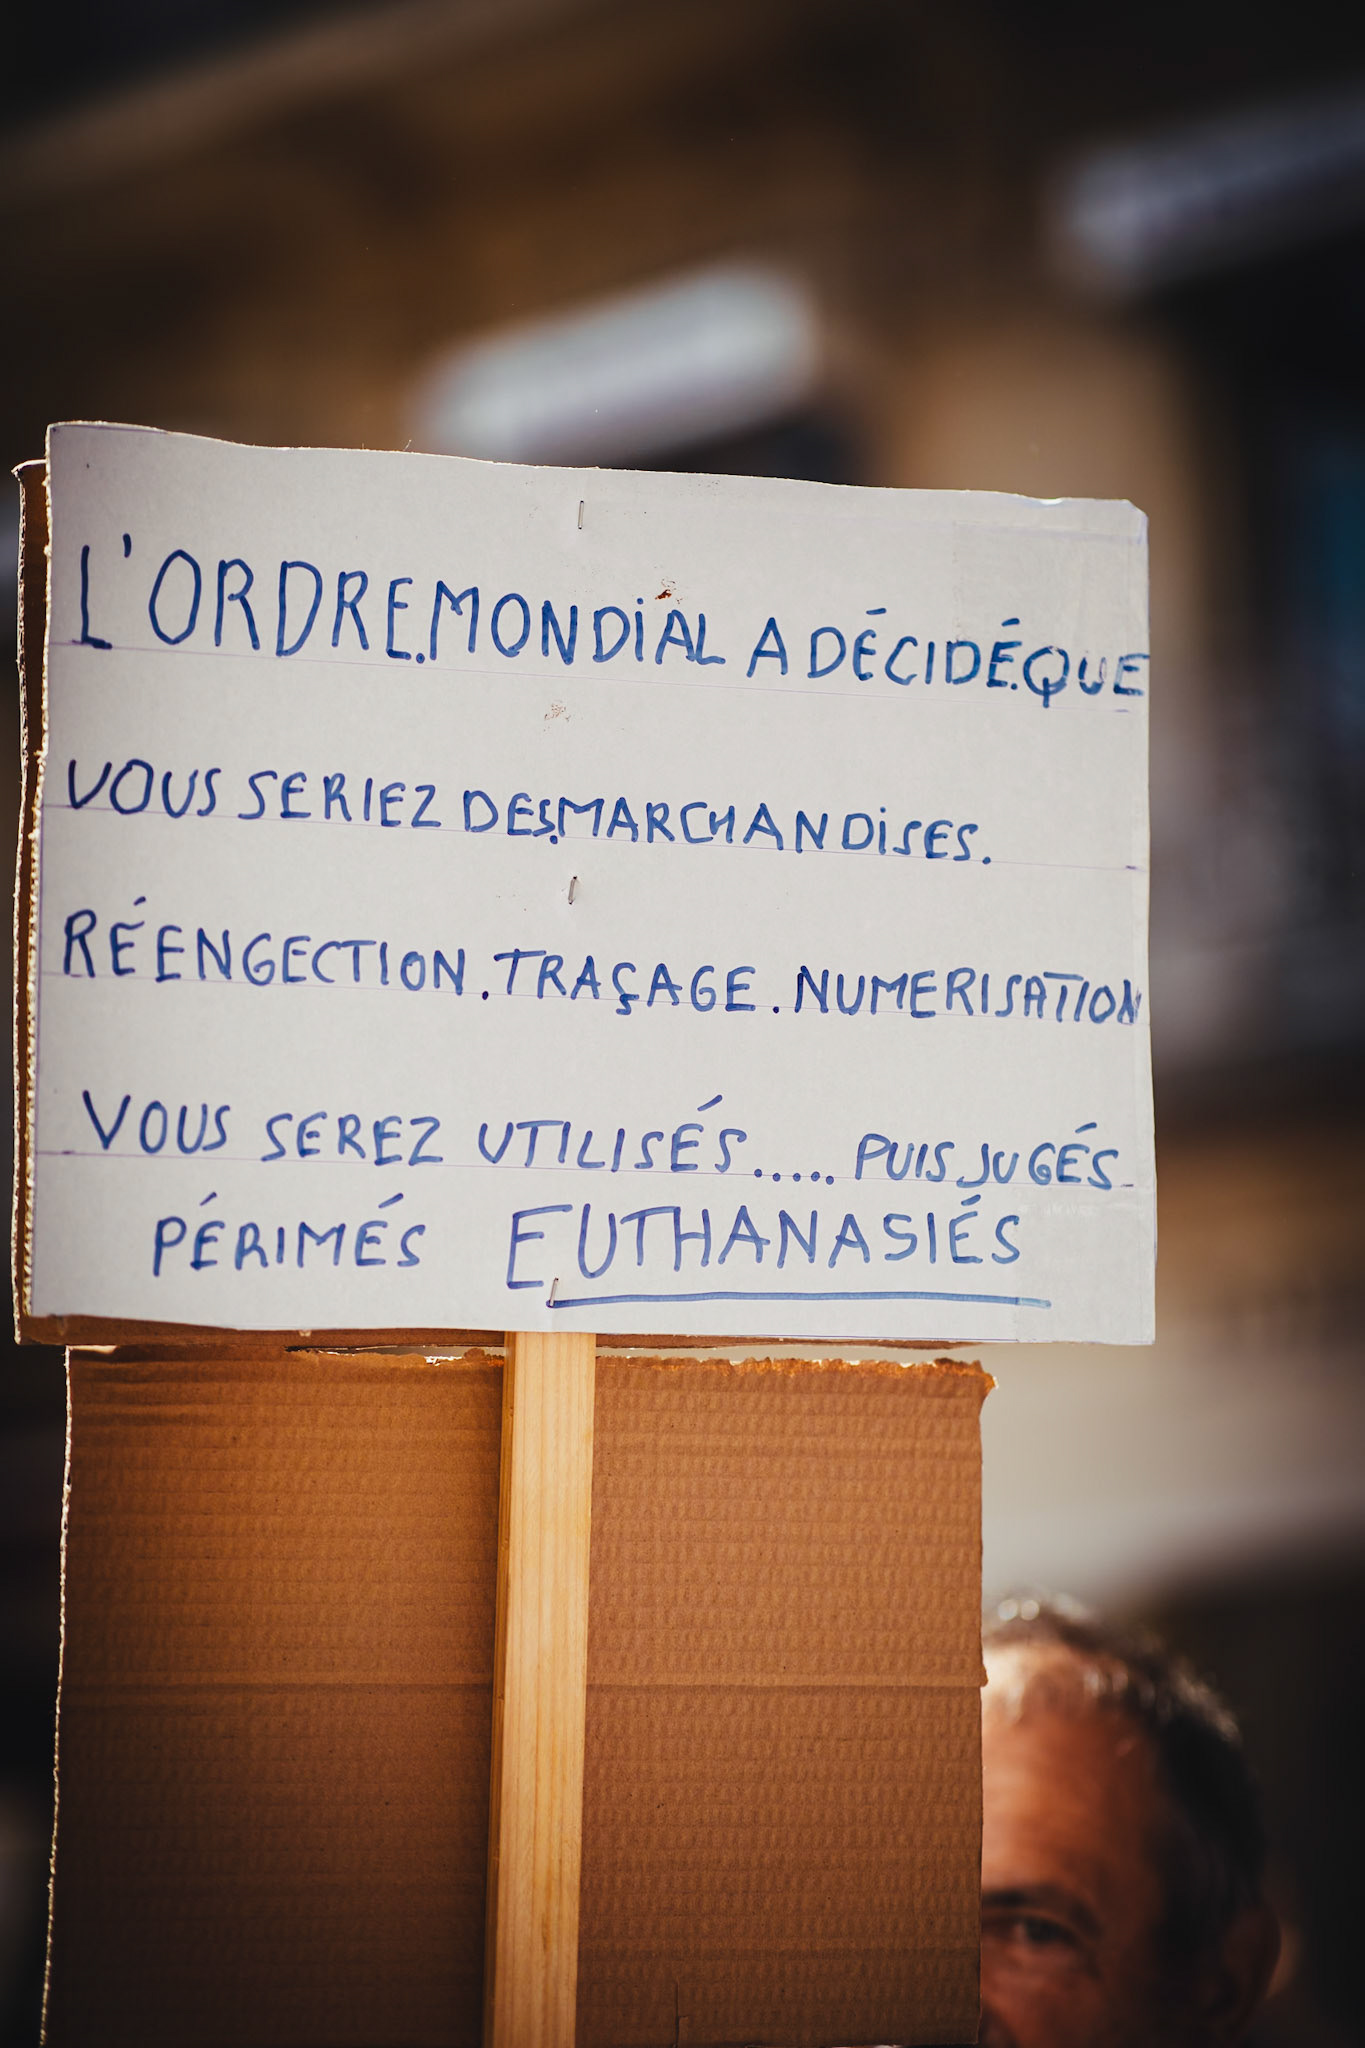 L'ORDRE.MONDIAL A DÉCIDÉ.QUE
VOUS SERIEZ DES.MARCHANDISES.
RÉENGECTION.TRAÇAGE.NUMERISATION
VOUS SEREZ UTILISÉS..... PUIS JUGÉS
PÉRIMÉS EUTHANASIÉS